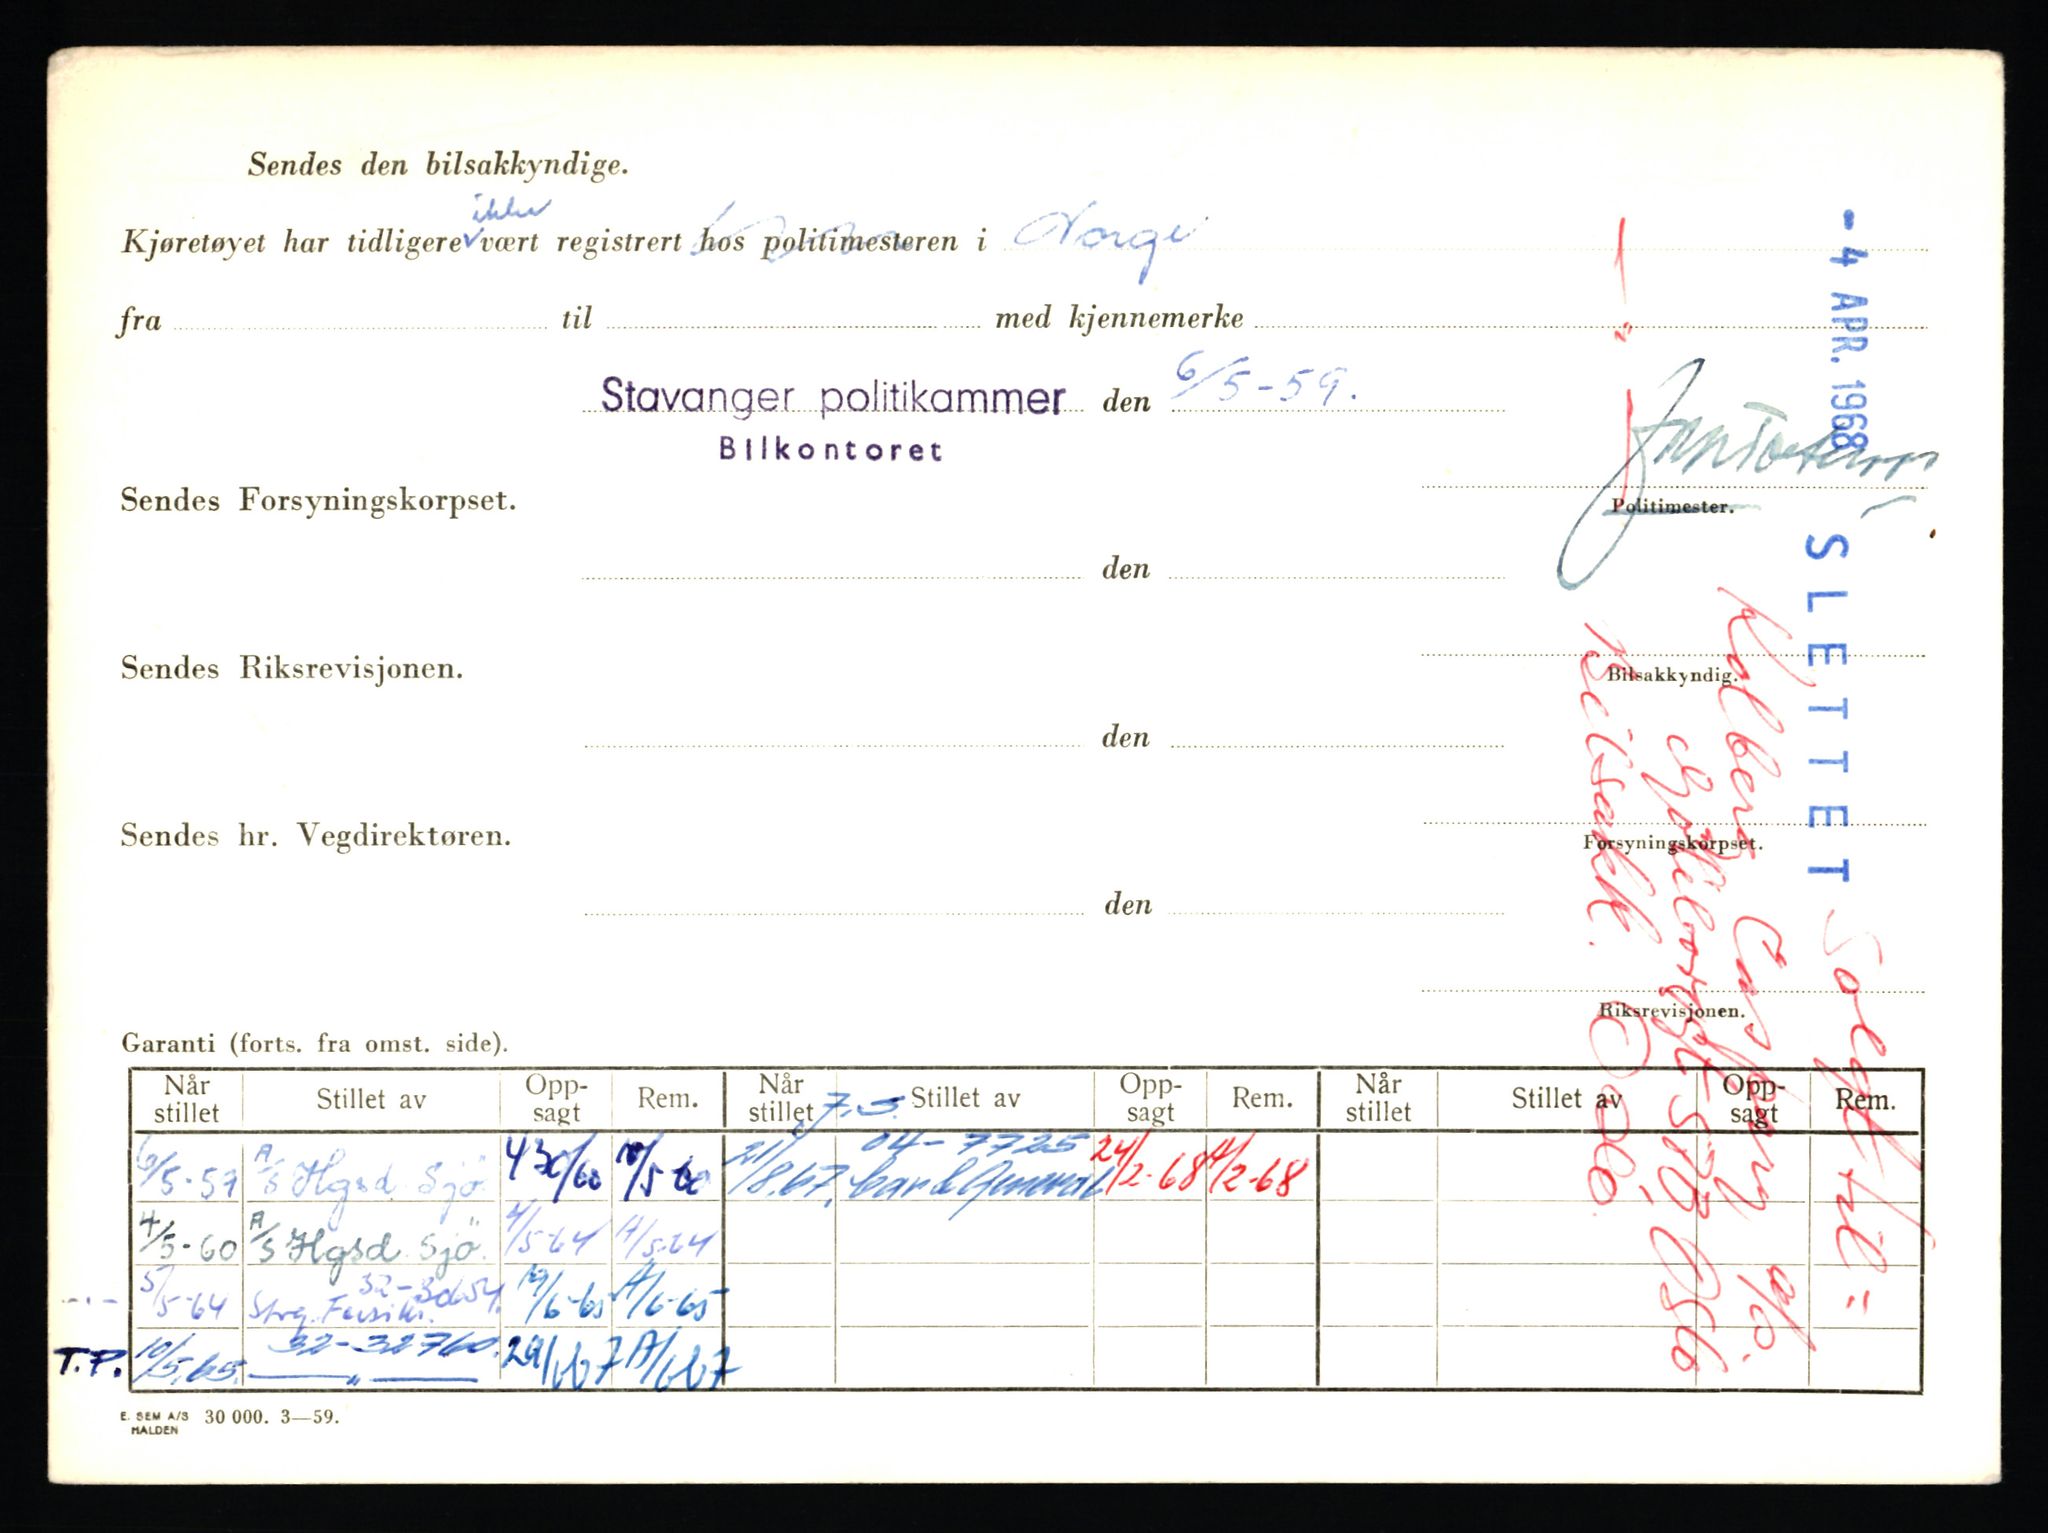 Sendes den bilsakkyndige.
ikke
Kjøretøyet har tidligere vært registrert hos politimesteren i Norge
fra til med kjennemerke
Stavanger politikammer den 6/5-59.
Bilkontoret
Sendes Forsyningskorpset.
Politimester.
den
Sendes Riksrevisjonen.
Bilsakkyndig.
den
Sendes hr. Vegdirektøren.
Forsyningskorpset.
den
Riksrevisjonen.
- 4 APR. 1968
SLETTET
Solgt til:
Company a/s.
Oslo
Beisakk. Oslo.
Garanti (forts. fra omst. side).
Når stillet Stillet av Opp-sagt Rem. Når stillet Stillet av Opp-sagt Rem. Når stillet Stillet av Opp-sagt Rem.
7.5. 04-7725
6/5-57 A/S Hgsd. Sjø 21/8.67. 24/2-68 A/2-68
4/5-60 A/S Hgsd. Sjø. 4/5-64 A/5-64
32-30654.
5/5-64 19/6-65 A/6-65
32-32760.
T.P. 10/5.65. — " — 29/6 67 A/6 67
E. SEM A/S HALDEN 30 000. 3—59.